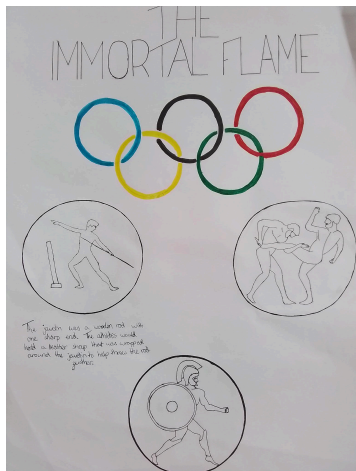 THE
IMMORTAL FLAME
The javelin was a wooden rod with
one sharp end. The athletes would
hold a leather strap that was wrapped
around the javelin to help throw the rod
further.